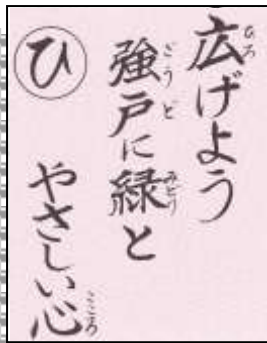 広げよう
強戸に緑と
やさしい心
ひ